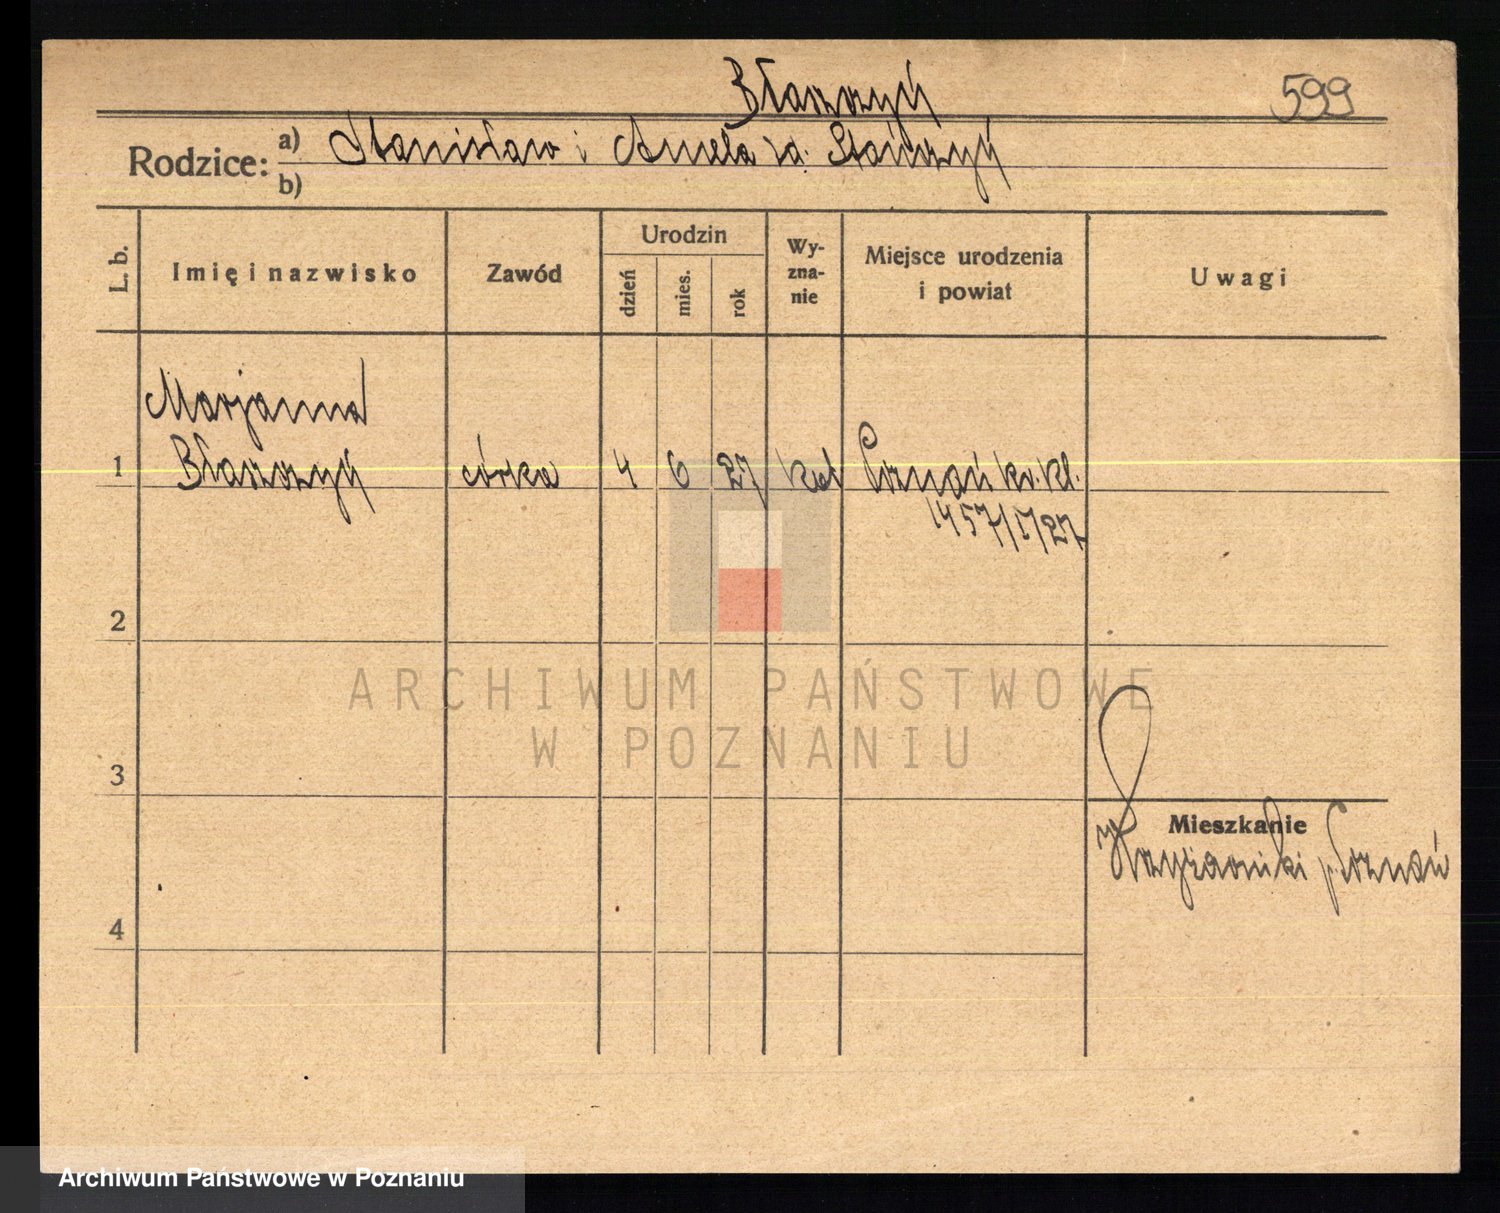 Błaszczyk
599
Rodzice:
a) Stanisław i Aniela
b)
L. b.
Imię i nazwisko
Zawód
Urodzin
dzień
mies.
rok
Wy-
zna-
nie
Miejsce urodzenia
i powiat
Uwagi
Marjanna
1 Błaszczyk córka 4 6 27 kat Poznań
1457/V/27
2
ARCHIWUM PAŃSTWOWE
W POZNANIU
3
Mieszkanie
Krzyżowniki p. Poznań
4
Archiwum Państwowe w Poznaniu